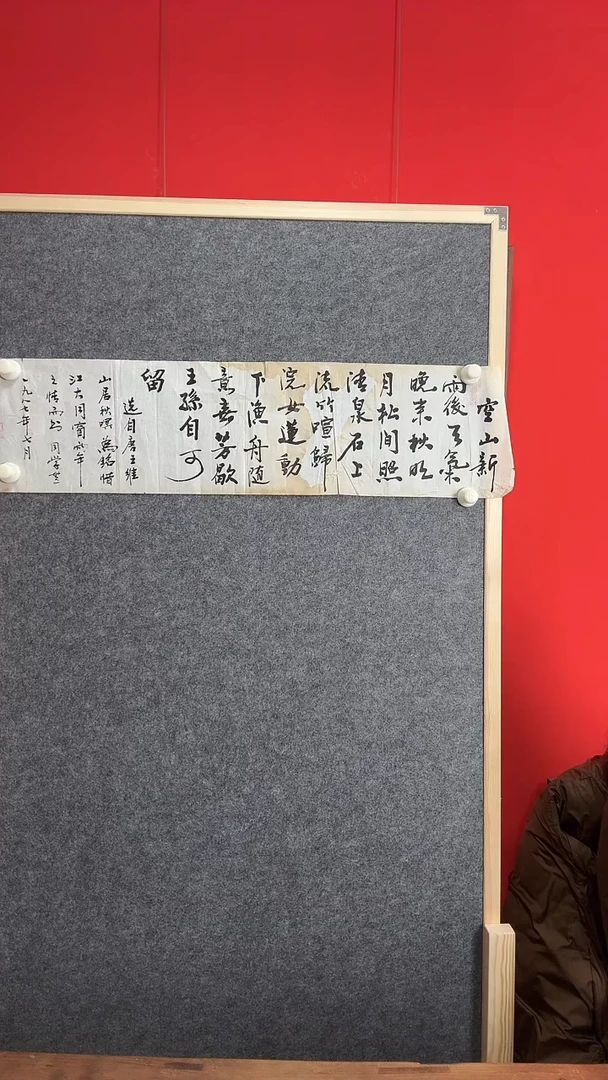 空山新
雨後天氣
晚来秋明
月松间照
清泉石上
流竹喧歸
浣女蓮動
下漁舟随
意春芳歇
王孫自可
留
选自唐王維
山居秋暝 為銘惜
江大同窗年
之情而书 同学
一九八七年七月